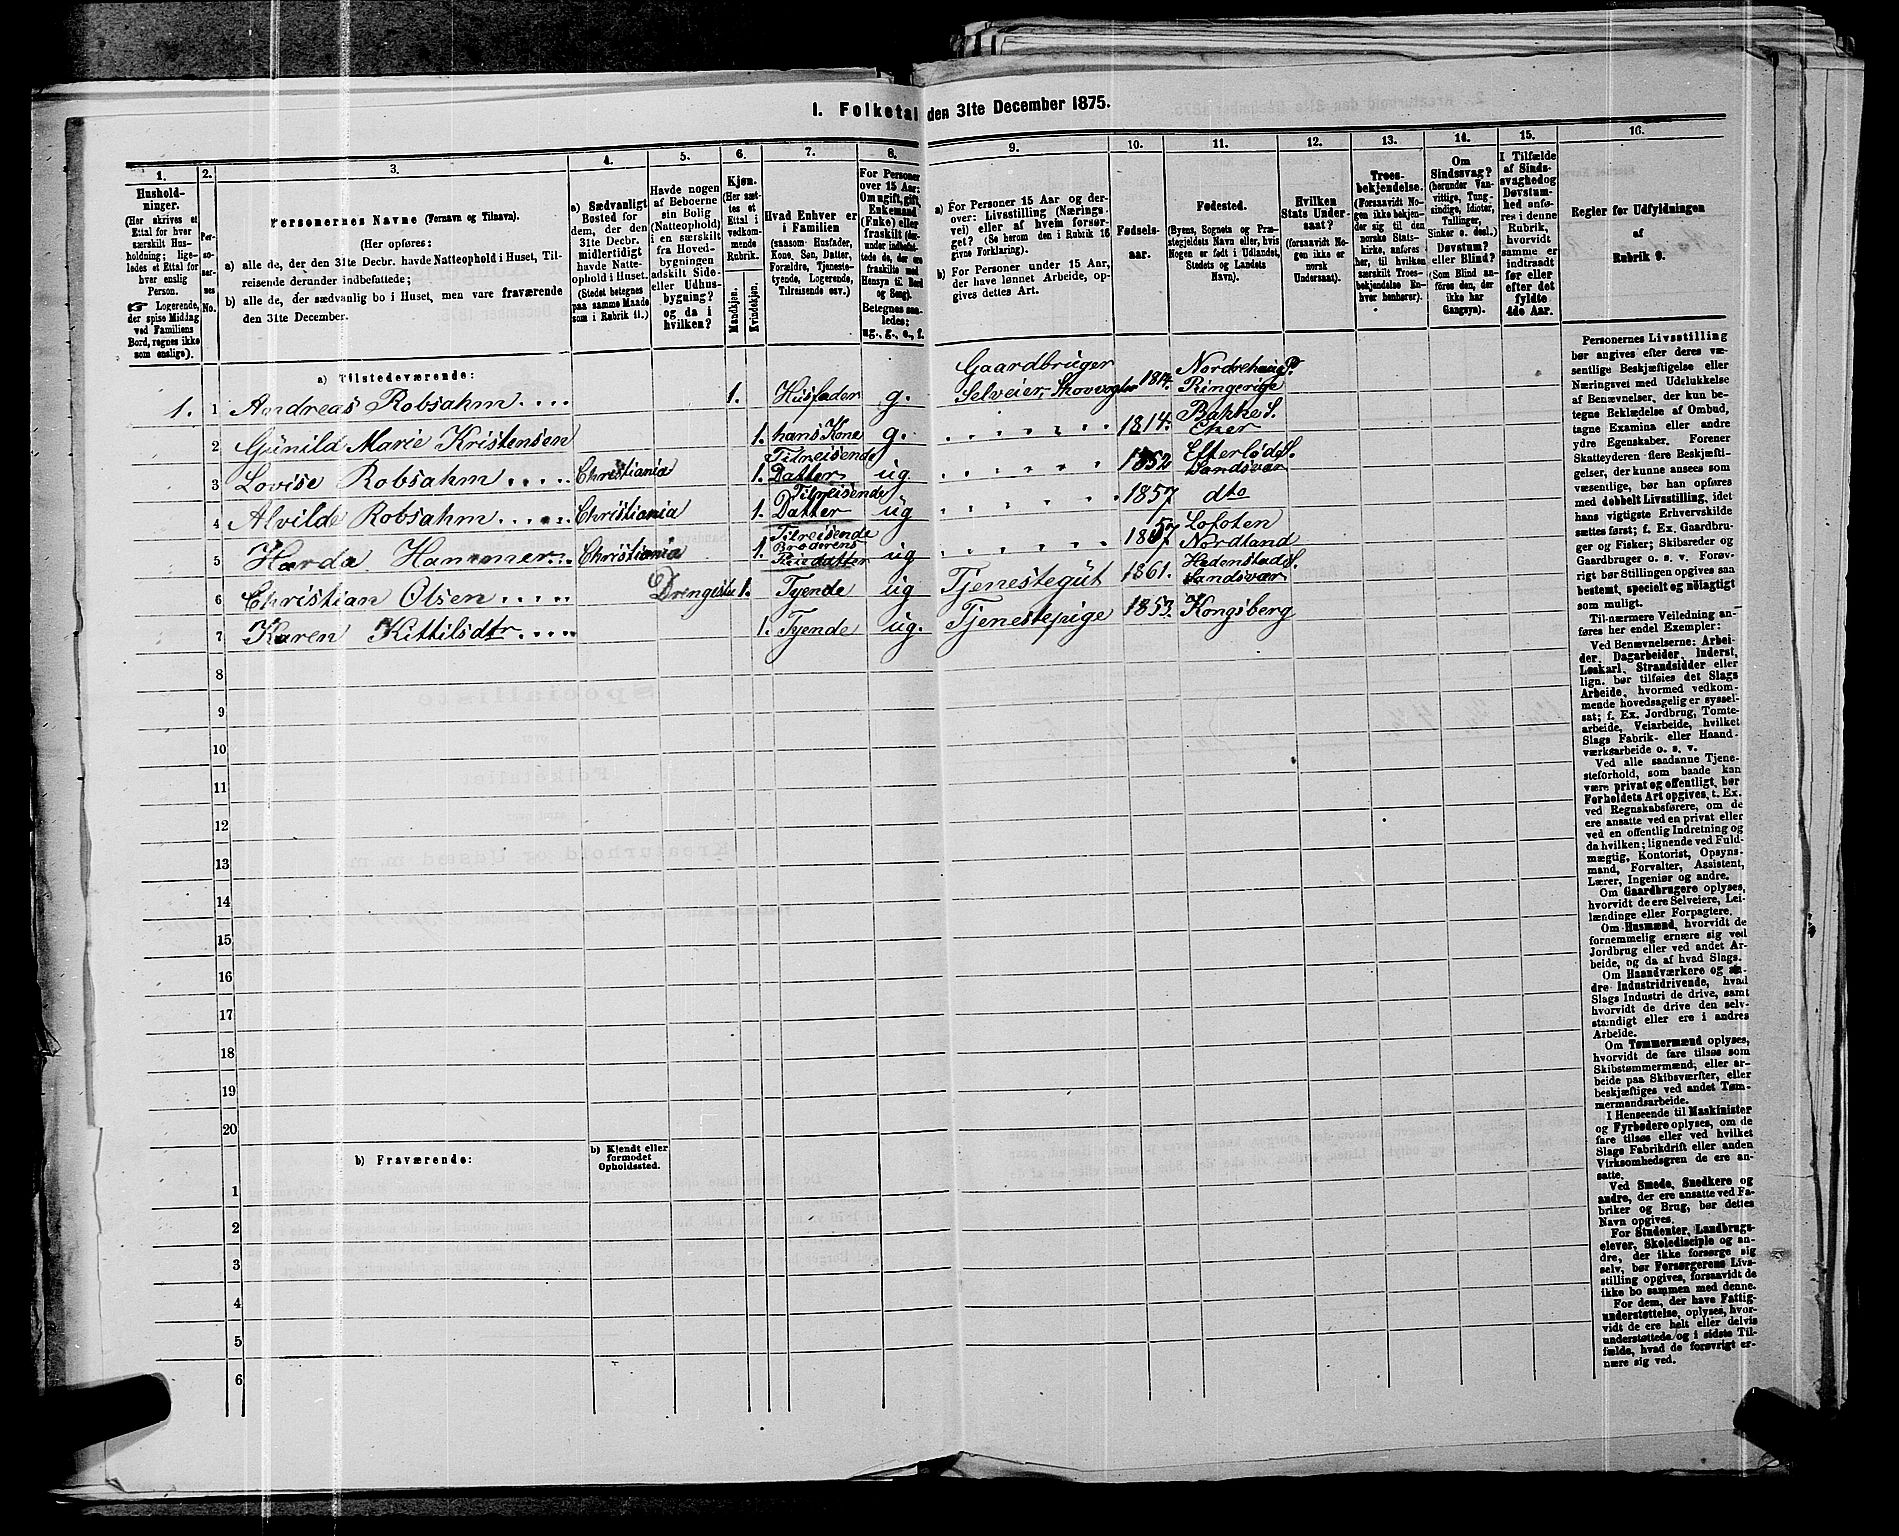 1. Folketal den 31te December 1875.
1.
2.
3.
4.
5.
6.
7.
8.
9.
10.
11.
12.
13.
14.
15.
16.
Hushold-
ninger.
(Her skrives et
Ettal for hver
særskilt Hus-
holdning; lige-
ledes et Ettal for
hver enslig
Person.
☞ Logerende,
der spise Middag
ved Familiens
Bord, regnes ikke
som enslige).
Per-
so-
ner-
nes
No.
Personernes Navne (Fornavn og Tilnavn).
(Her opføres:
a) alle de, der den 31te Decbr. havde Natteophold i Huset, Til-
reisende derunder indbefattede;
b) alle de, der sædvanlig bo i Huset, men vare fraværende
den 31te December.
a) Sædvanligt
Bosted for
dem, der den
31te Decbr.
midlertidigt
havde Natte-
ophold i Huset.
(Stedet betegnes
paa samme Maade
som i Rubrik 11.)
Havde nogen
af Beboerne
sin Bolig
(Natteophold)
i en særskilt
fra Hoved-
bygningen
adskilt Side-
eller Udhus-
bygning?
og da i
hvilken?
Kjøn.
(Her sæt-
tes et
Ettal i
vedkom-
mende
Rubrik.
Mandkjøn.
Kvindekjøn.
Hvad Enhver er
i Familien
(saasom Husfader,
Kone, Søn, Datter,
Forældre, Tjeneste-
tyende, Logerende,
Tilreisende osv.)
For Personer
over 15 Aar:
Om ugift, gift,
Enkemand
(Enke) eller
fraskilt (der-
under indbefat-
tede de, der ere
fraskilte med
Hensyn til Bord
og Seng).
Betegnes saa-
ledes:
ug., g., e., f.
a) For Personer 15 Aar og der-
over: Livsstilling (Nærings-
vei) eller af hvem forsør-
get? (Se herom den i Rubrik 16
givne Forklaring).
b) For Personer under 15 Aar,
der have lønnet Arbeide, op-
gives dettes Art.
Fødsels-
aar.
Fødested.
(Byens, Sognets og Præ-
stegjeldets Navn eller, hvis
Nogen er født i Udlandet,
Stedets og Landets
Navn).
Hvilken
Stats Under-
saat?
(forsaavidt No-
gen ikke er
norsk
Undersaat).
Troes-
bekjendelse.
(Forsaavidt No-
gen ikke bekjen-
der sig til den
norske Stats-
kirke, anføres
her, til hvilken
særskilt Troes-
bekjendelse En-
hver henhører).
Om
Sindssvag?
(herunder Van-
vittige, Tung-
sindige, Idioter,
Tullinger,
Sinker o. desl.)
Døvstum?
eller Blind?
(Som Blind an-
føres den, der
ikke har
Gangsyn).
I Tilfælde
af Sinds-
svaghed og
Døvstum-
hed anfø-
res i denne
Rubrik,
hvorvidt
samme er
indtraadt
før eller
efter det
fyldte
4de Aar.
Regler for Udfyldningen
af
Rubrik 9.
a) Tilstedeværende:
1. 1 Andreas Robsahm .... 1. Husfader g. Gaardbruger Selveier, Skovvogter 1814. Nordrehaug P. Ringerige
2 Gunild Marie Kristensen 1. hans Kone g. 1814. Bakke S. Eker
3 Lovise Robsahm ..... Christiania 1. Tilreisende Datter ug 1852 Efterløds S. Sandsvær
4 Alvilde Robsahm ..... Christiania 1. Tilreisende Datter ug 1857 dto
5 Harda Hammer... Christiania 1. Tilreisende ug 1857 Lofoten Nordland
6 Christian Olsen .... Drengestu 1. Tyende ug Tjenestegut 1861. Hedenstad S. Sandsvær
7 Karen Kittilsdtr.... 1. Tyende ug. Tjenestepige 1853. Kongsberg
8
9
10
11
12
13
14
15
16
17
18
19
20
b) Fraværende:
b) Kjendt eller
formodet
Opholdssted.
1
2
3
4
5
6
Personernes Livsstilling
bør angives efter deres væ-
sentlige Beskjæftigelse eller
Næringsvei med Udelukkelse
af Benævnelser, der kun be-
tegne Beklædelse af Ombud,
tagne Examina eller andre
ydre Egenskaber. Forener
Skatteyderen flere Beskjæfti-
gelser, der kunne ansees som
væsentlige, bør han opføres
med dobbelt Livsstilling, idet
hans vigtigste Erhvervskilde
sættes først; f. Ex. Gaardbru-
ger og Fisker; Skibsreder og
Gaardbruger o. s. v. Forøv-
rigt bør Stillingen opgives saa
bestemt, specielt og nøiagtigt
som muligt.
Til nærmere Veiledning an-
føres her endel Exempler:
Ved Benævnelserne: Arbei-
der, Dagarbeider, Inderst,
Løskarl, Strandsidder eller
lign. bør tilføies det Slags
Arbeide, hvormed vedkom-
mende hovedsagelig er syssel-
sat; f. Ex. Jordbrug, Tomte-
arbeide, Veiarbeide, hvilket
Slags Fabrik- eller Haand-
værksarbeide o. s. v.
Ved alle saadanne Tjene-
steforhold, som baade kan
være privat og offentligt, bør
Forholdets Art opgives, t. Ex.
ved Regnskabsførere, om de
ere ansatte ved en privat eller
ved en offentlig Indretning og
da hvilken; lignende ved Fuld-
mægtig, Kontorist, Opsyns-
mand, Forvalter, Assistent,
Lærer, Ingeniør og andre.
Om Gaardbrugere oplyses,
hvorvidt de ere Selveiere, Lei-
lændinge eller Forpagtere.
Om Husmænd, hvorvidt de
fornemmelig ernære sig ved
Jordbrug eller ved andet Ar-
beide, og da af hvad Slags.
Om Haandværkere og an-
dre Industridrivende, hvad
Slags Industri de drive, samt
hvorvidt de drive den selv-
stændigt eller ere i andres
Arbeide.
Om Tømmermænd oplyses,
hvorvidt de fare tilsøs som
Skibstømmermænd, eller ar-
beide paa Skibsværfter, eller
beskjæftiges ved andet Tøm-
mermandsarbeide.
I Henseende til Maskinister
og Fyrbødere oplyses, om de
fare tilsøs eller ved hvilket
Slags Fabrikdrift eller anden
Virksomhedsgren de ere an-
satte.
Ved Smede, Snedkere og
andre, der ere ansatte ved Fa-
briker og Brug, bør dettes
Navn opgives.
For Studenter, Landbrugs-
elever, Skoledisciple og an-
dre, der ikke forsørge sig
selv, bør Forsørgerens Livs-
stilling opgives, forsaavidt de
ikke bo sammen med denne.
For dem, der have Fattig-
understøttelse, oplyses, hvor-
vidt de ere helt eller delvis
understøttede og i sidste Til-
fælde, hvad de forøvrigt er-
nære sig ved.